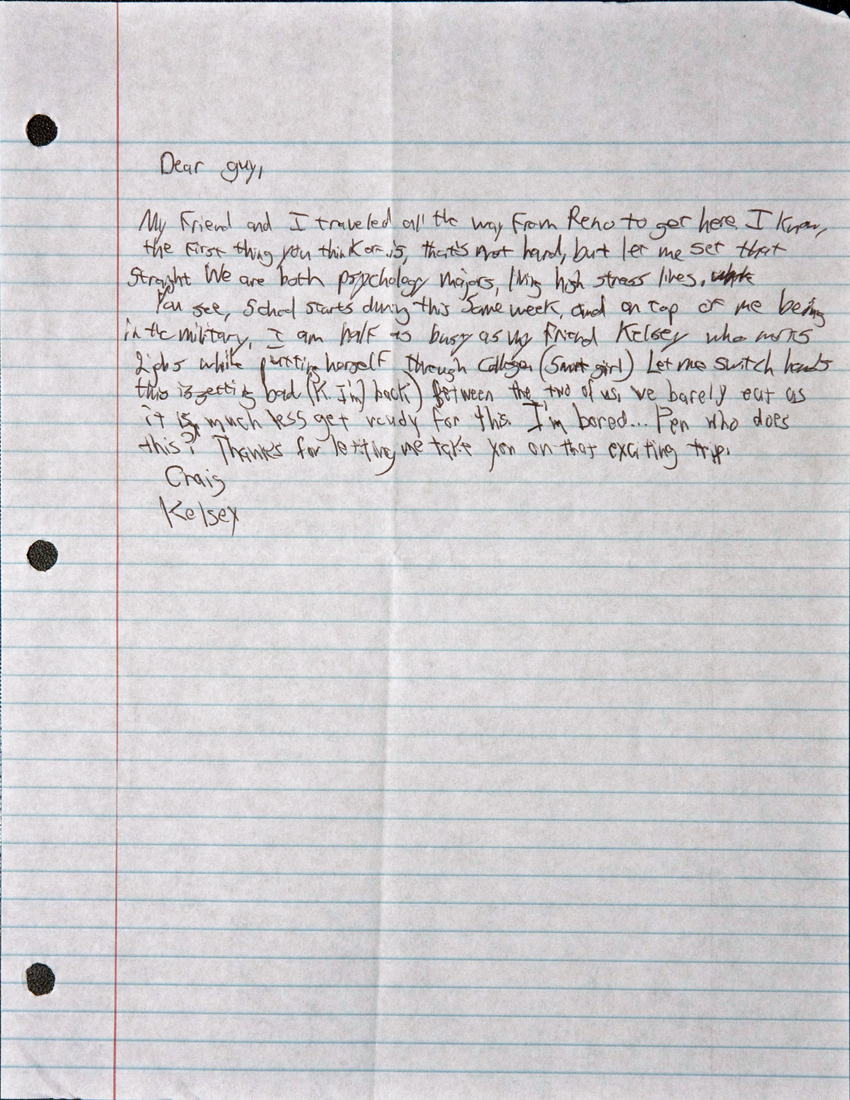 Dear guy,
My Friend and I traveled all the way from Reno to get here. I know,
the first thing you think of is, that's not hard, but let me set that
straight We are both psychology majors, living high stress lives.
You see, School starts during this same week, and on top of me being
in the military, I am half as busy as my friend Kelsey who works
2 jobs while putting herself through College (Smart girl) Let me switch hands
this is getting bad (K. I'm back) Between the two of us, we barely eat as
it is, much less get ready for this. I'm bored... Pen who does
this? Thanks for letting me take you on that exciting trip.
Craig
Kelsey